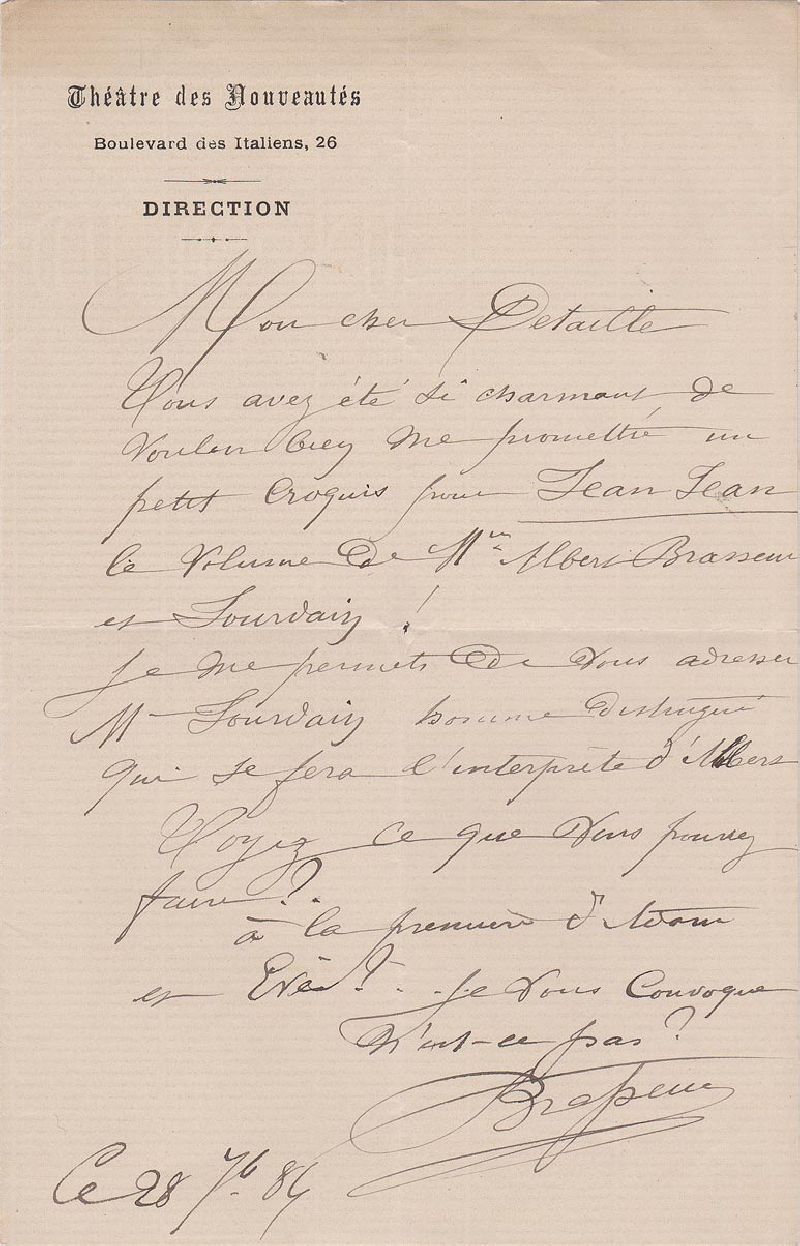 Théâtre des Nouveautés
Boulevard des Italiens, 26
DIRECTION
Mon cher Detaille
Vous avez été si charmant de
vouloir bien me promettre un
petit croquis pour Jean Jean
le volume de Mrs Albert Brasseur
et Jourdain !
je me permets de vous adresser
Mr Jourdain homme distingué
qui se fera l'interprète d'Albert
Voyez ce que vous pouvez
faire ? .
à la première d'Adam
et Eve ? . . je vous convoque
N'est-ce pas ?
Brasseur
Ce 28 7b 84